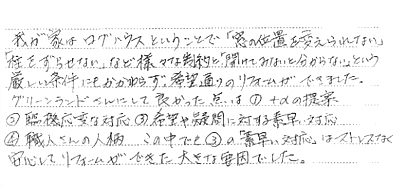 我が家はログハウスということで「窓の位置を変えられない」
「柱をずらせない」など様々な制約と「開けてみないと分からない」という
厳しい条件にもかかわらず、希望通りのリフォームができました。
グリーンランドさんにして良かった点は ① +αの提案
② 臨機応変な対応 ③ 希望や疑問に対する素早い対応
④ 職人さんの人柄 この中でも ③の「素早い対応」はストレスなく
安心してリフォームができた大きな要因でした。